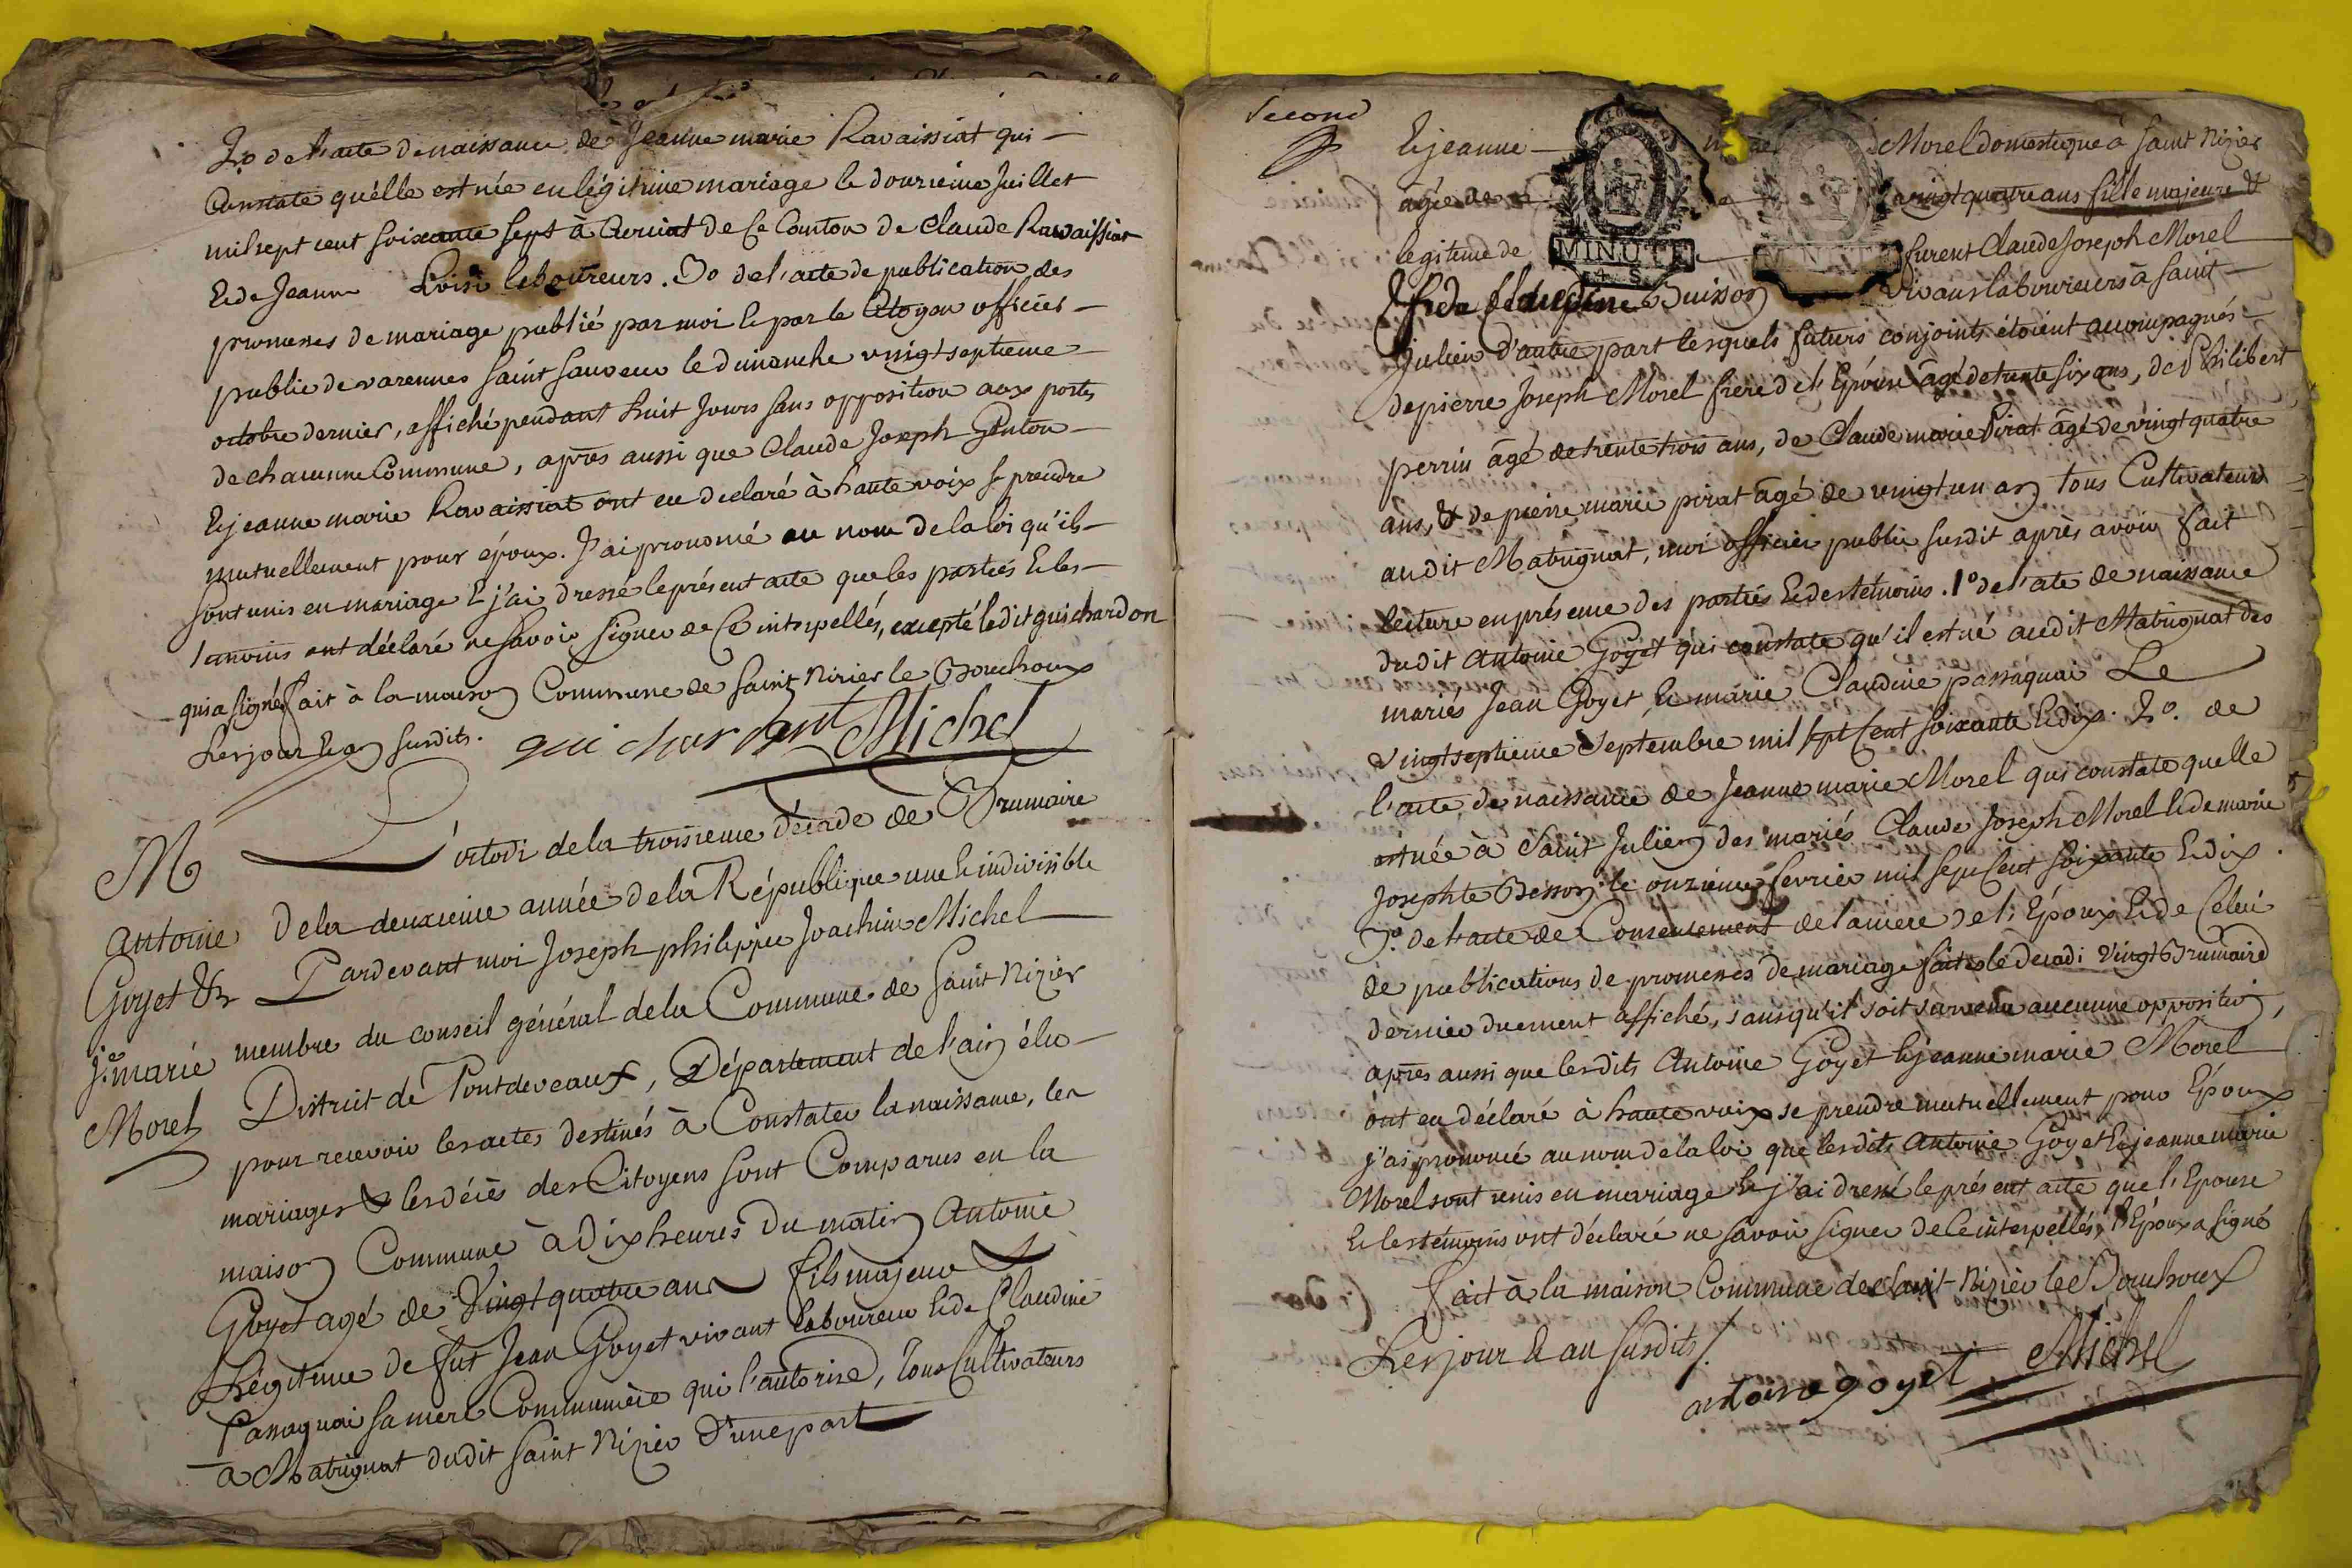 2.o de l'acte de naissance de Jeanne marie Ravaissiat qui
Constate qu'elle est née en légitime mariage le douzieme Juillet
mil sept cent soixante sept à Curciat de Ce Canton de Claude Ravaissiat
& de Jeanne Loisi laboureurs. 3o de l'acte de publication des
promesses de mariage publié par moi & par le Citoyen officier
public de varennes saint sauveur le dimanche vingt septieme
octobre dernier, affiché pendant huit Jours sans opposition aux portes
de chacunne Commune, après aussi que Claude Joseph Genton
& jeanne marie Ravaissiat ont eu declaré à haute voix se prendre
mutuellement pour époux. J'ai prononcé au nom de la loi qu'ils
sont unis en mariage & j'ai dressé le présent acte que les parties & les
temoins ont déclaré ne savoir signer de Ce interpellés, excepté ledit guichardon
qui a signé fait à la maison Commune de saint Nizier le Bouchoux
Les jour & an susdits.
guichardont Michel
L'octodi de la troisieme décade de Brumaire
M
Antoine
Goyet &
J.e marie
Morel
De la deuxieme année de la République une & indivisible
Pardevant moi Joseph philippe Joachim Michel
membre du conseil général de la Commune de Saint Nizier
District de Pontdevaux, Département de l'ain élu
pour recevoir les actes destinés à Constater la naissance, les
mariages & les décès des Citoyens sont Comparus en la
maison Commune à dix heures du matin Antoine
Goyet agé de Vingt quatre ans fils majeur &
Légitime de fut Jean Goyet vivant laboureur & de Claudine
Passaquai sa mere Communiere qui l'autorise, tous Cultivateurs
à Matignat dudit saint Nizier d'une part
Second
& jeanne Morel domestique à saint Nizier
agée de vingt quatre ans fille majeure &
legitime de furent Claude Joseph Morel
MINUTE
4 S
MINUTE
& de Buisson vivans laboureurs à saint
Julien d'autre part lesquels futurs conjoints étoient accompagnés
de pierre Joseph Morel frere de l'Epouse âgé de trente six ans, de Philibert
perrin âgé de trente trois ans, de Claude marie Pirat âgé de vingt quatre
ans, & de pierre marie pirat âgé de vingt un an tous Cultivateurs
audit Matignat, moi officier public susdit après avoir fait
lecture en présence des parties & des témoins. 1o de l'ate de naissance
dudit Antoine Goyet qui constate qu'il est né audit Matignat des
mariés Jean Goyet, & marie Claudine passaquai Le
vingt septieme Septembre mil sept Cent soixante & dix. 2o. de
l'acte de naissance de Jeanne marie Morel qui constate quelle
est née à Saint Julien des mariés Claude Joseph Morel & de marie
Josephte Besson le onzieme fevrier mil sept Cent soixante & dix.
3o. de l'acte de Consentement de la mere de l'Epoux & de Celui
de publications de promesses de mariage faites le decadi vingt Brumaire
dernier duement affiché, sans qu'il soit survenu aucunne opposition,
après aussi que lesdits Antoine Goyet & jeanne marie Morel
ont eu déclaré à haute voix se prendre mutuellement pour Epoux
j'ai prononcé au nom de la loi que lesdits Antoine Goyet & jeanne marie
Morel sont unis en mariage & j'ai dressé le présent acte que l'Epouse
& les témoins ont déclaré ne savoir signer de Ce interpellés, l'Epoux a signé
fait à la maison Commune de saint Nizier le Bouchoux
Les jour & an susdits.
antoine goyet Michel